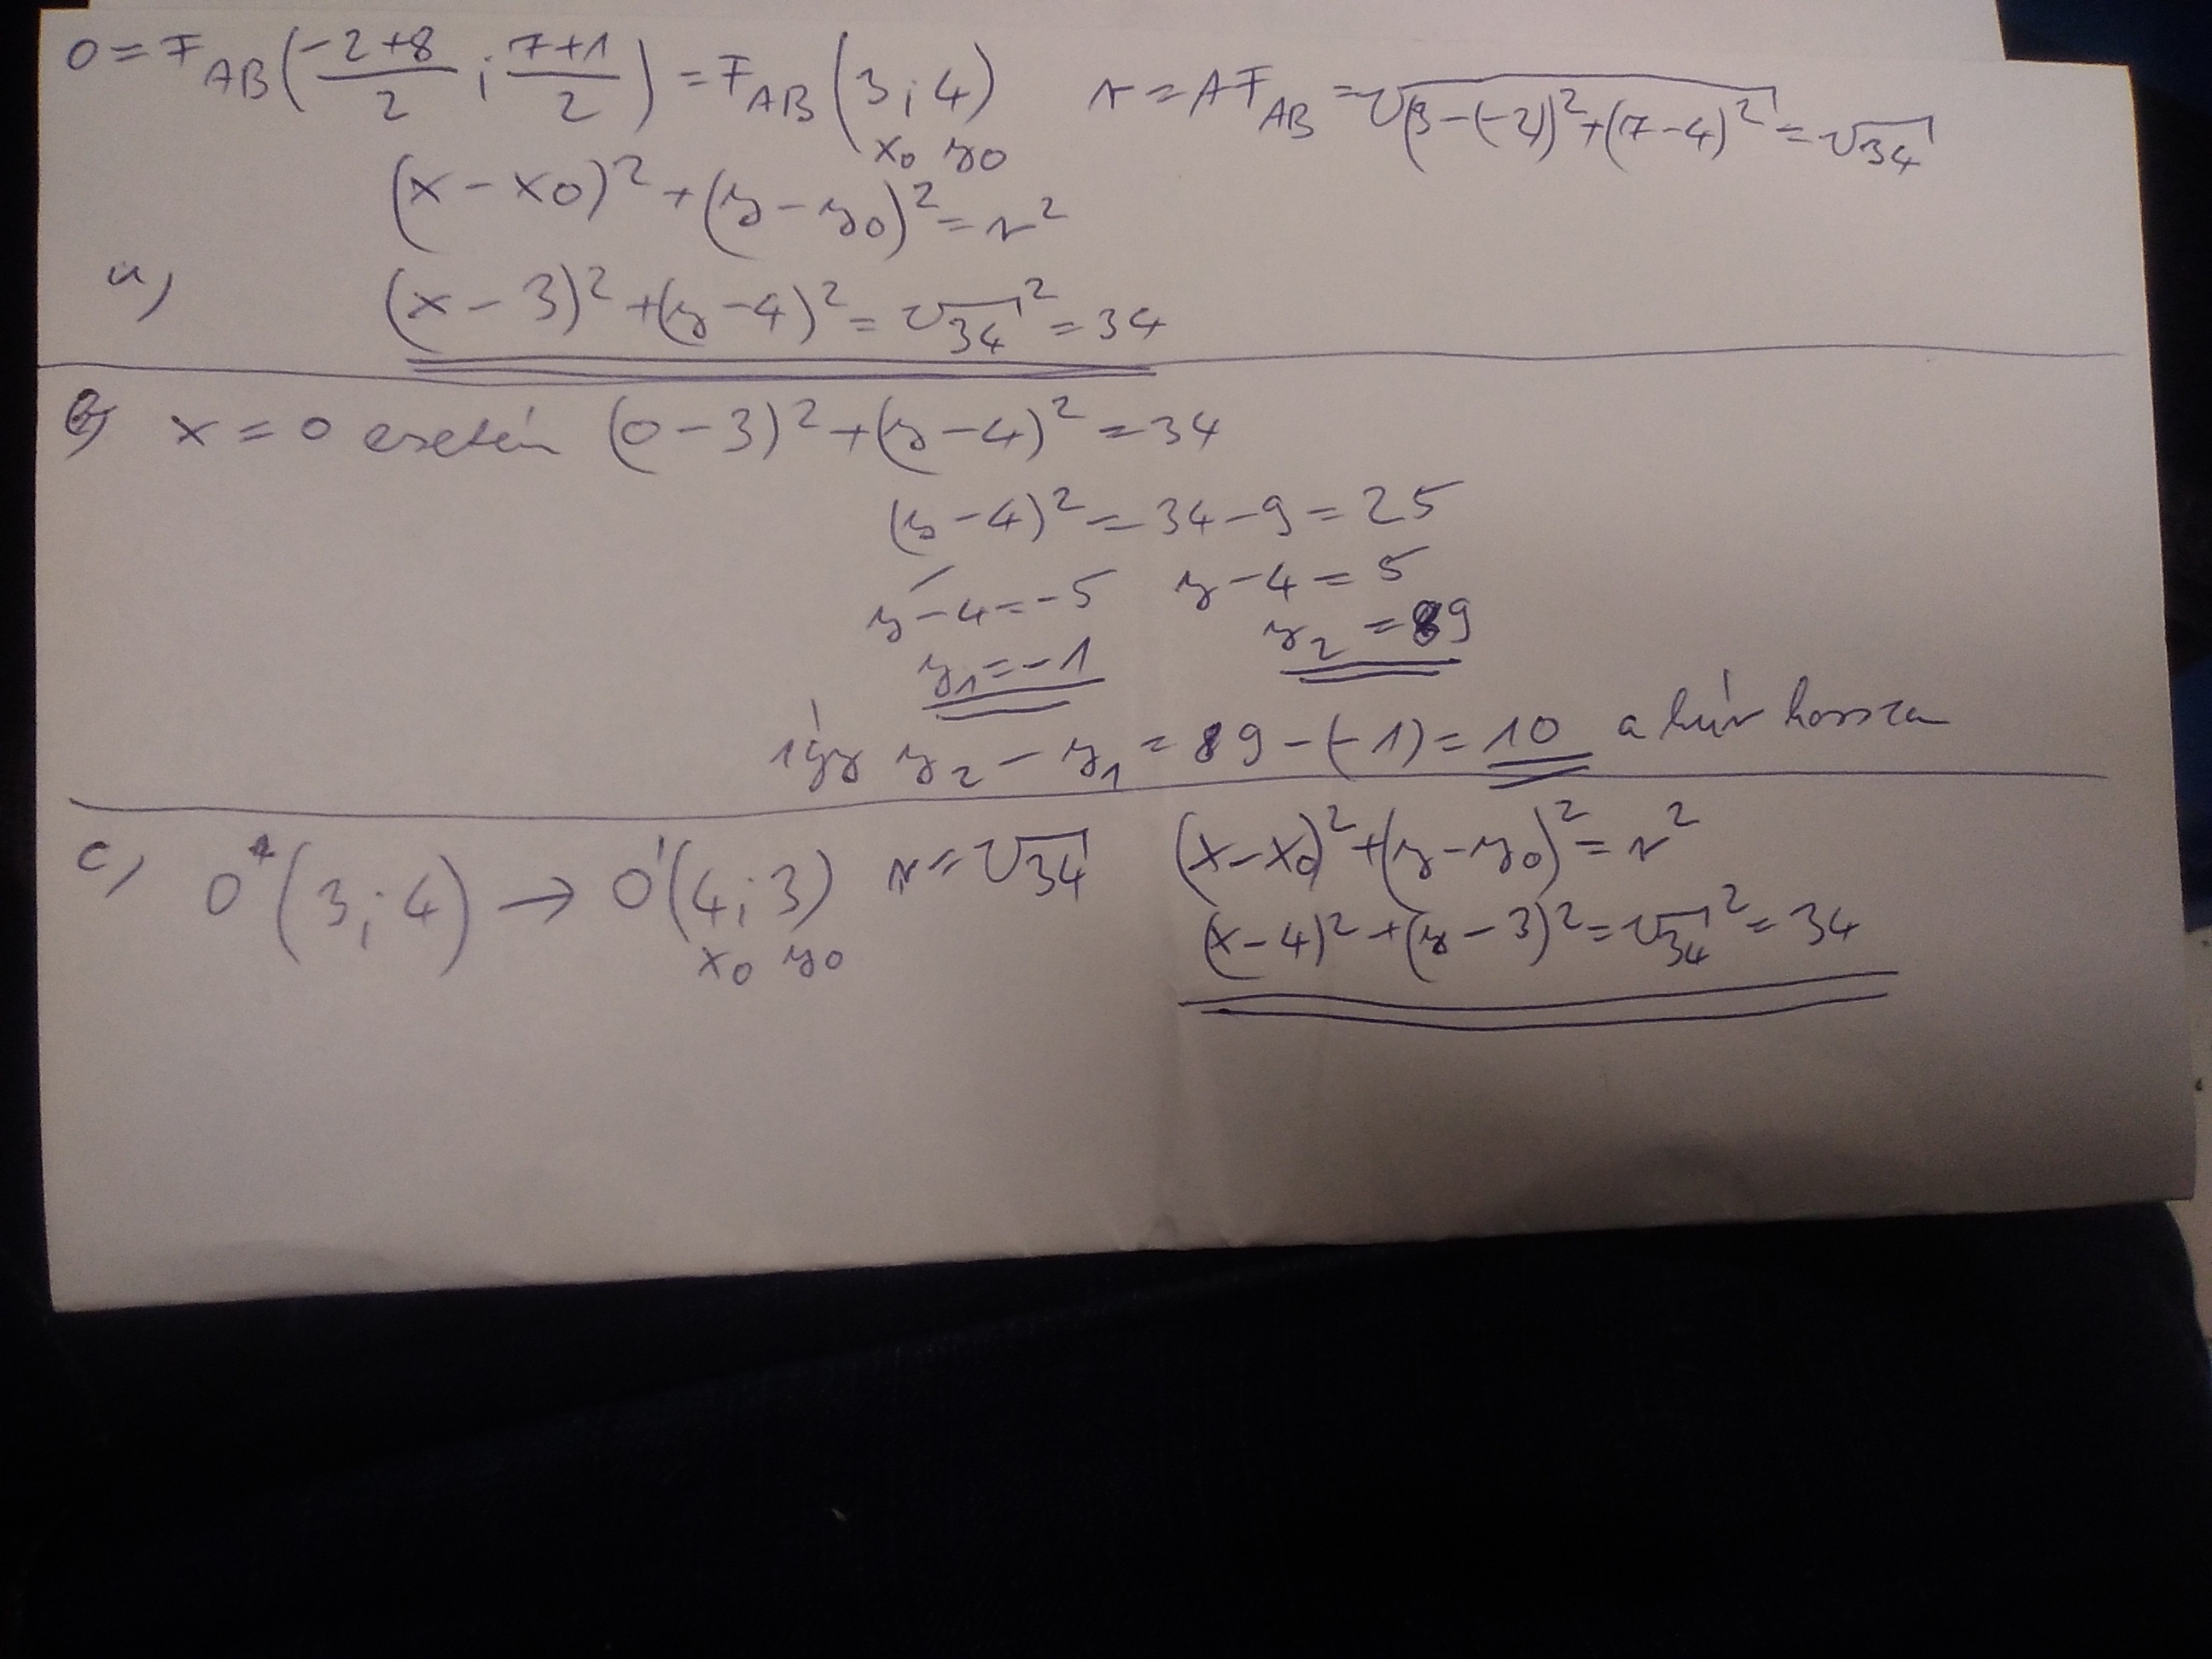 O = F_AB((-2+8)/2 ; (7+1)/2) = F_AB(3 ; 4) r = AF_AB = √((3-(-2))²+(7-4)²) = √34
x₀ y₀
(x - x₀)² + (y - y₀)² = r²
a) (x - 3)² + (y - 4)² = √34² = 34
b) x = 0 esetén (0 - 3)² + (y - 4)² = 34
(y - 4)² = 34 - 9 = 25
y - 4 = -5 y - 4 = 5
y₁ = -1 y₂ = 9
így y₂ - y₁ = 9 - (-1) = 10 a húr hossza
c) O(3 ; 4) → O'(4 ; 3) r = √34 (x - x₀)² + (y - y₀)² = r²
x₀ y₀ (x - 4)² + (y - 3)² = √34² = 34